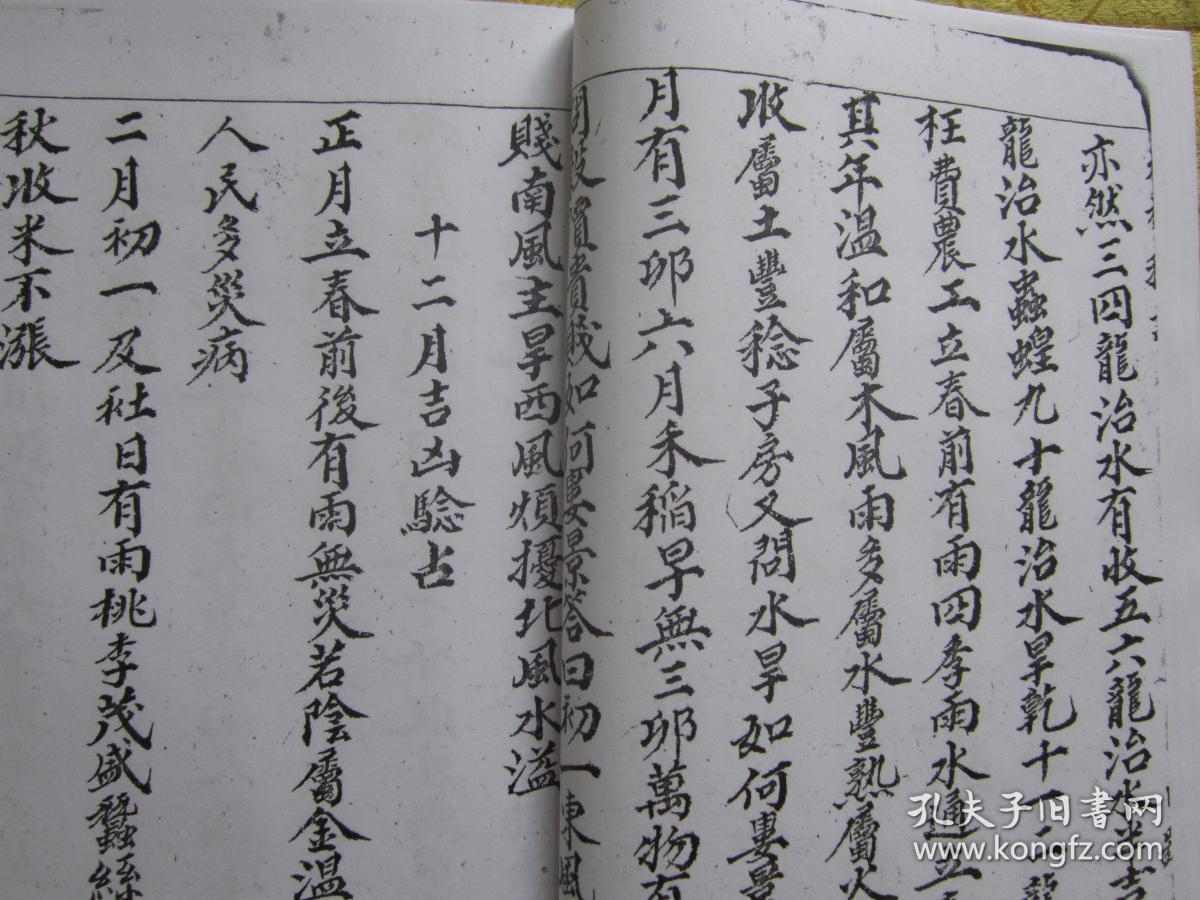 亦然三四龍治水有收五六龍治水米
龍治水蟲蝗九十龍治水旱乾十一二龍
枉費農工立春前有雨四季雨水通立
其年温和屬木風雨多屬水豐熟屬火
收屬土豐稔子房又問水旱如何婁景
月有三卯六月禾稻早無三卯萬物有
貴賤如何婁景答曰初一東風
賤南風主旱西風煩擾北風水溢
十二月吉凶驗占
正月立春前後有雨無災若陰屬金温
人民多災病
二月初一及社日有雨桃李茂盛蠶絲
秋收米不漲
孔夫子旧书网
www.kongfz.com